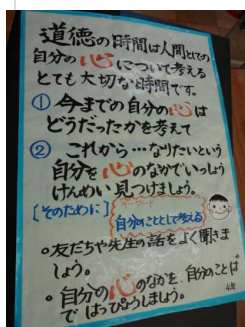 道徳の時間は人間としての
自分の心について考える
とても大切な時間です。
① 今までの自分の心は
どうだったかを考えて
② これから…なりたいという
自分を心のなかでいっしょう
けんめい見つけましょう。
[そのために]
自分のこととして考える
○友だちや先生の話をよく聞きま
しょう。
○自分の心のなかを、自分のことば
で はっぴょうしましょう。